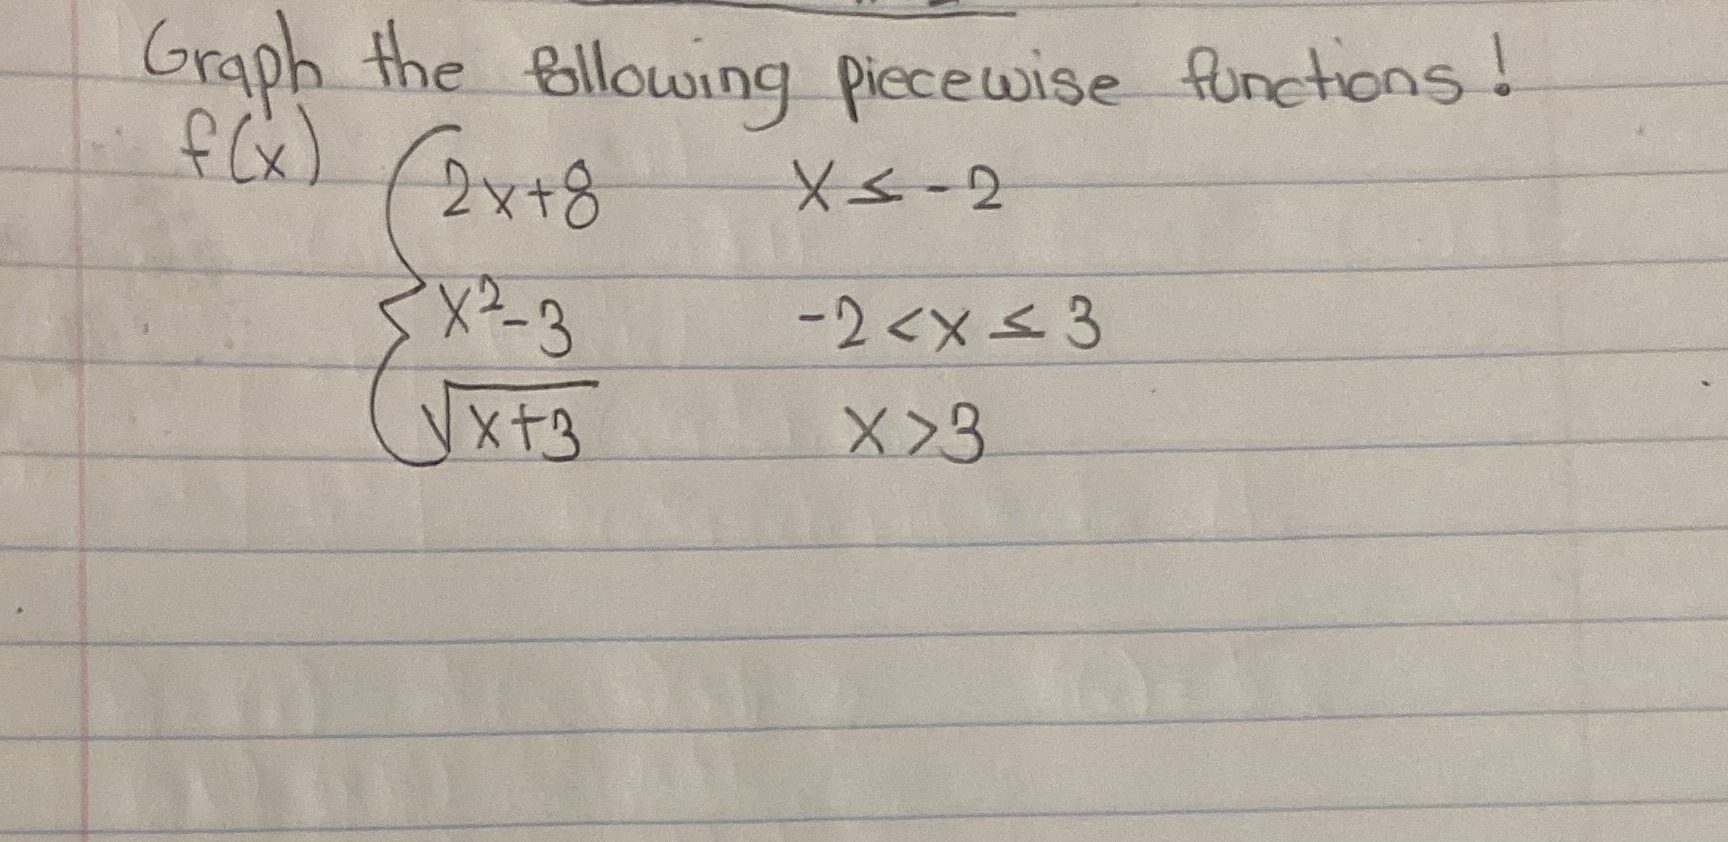 Graph the following piecewise functions!
f(x)
2x+8 x ≤ -2
x²-3 -2 < x ≤ 3
√x+3 x > 3